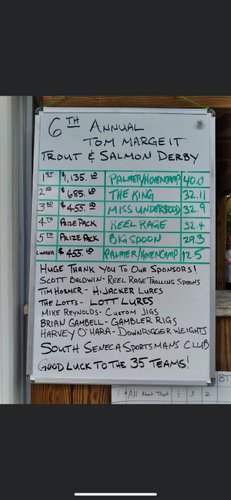 6TH ANNUAL
TOM MARGEIT
TROUT & SALMON DERBY
1ST $1,135.00 PALMER/HOVENCAMP 40.0
2ND $685.00 THE KING 32.11
3RD $455.00 MISS UNDERSIZED 32.9
4TH PRIZE PACK REEL RAGE 32.4
5TH PRIZE PACK BIG SPOON 29.3
$455.00 PALMER/HOVENCAMP 12.5
HUGE THANK YOU TO OUR SPONSORS!
SCOTT BALDWIN - REEL RAGE TROLLING SPOONS
TIM HOSMER - HIJACKER LURES
THE LOTTS - LOTT LURES
MIKE REYNOLDS - CUSTOM JIGS
BRIAN GAMBELL - GAMBLER RIGS
HARVEY O'HARA - DOWNRIGGER WEIGHTS
SOUTH SENECA SPORTSMANS CLUB
GOOD LUCK TO THE 35 TEAMS!